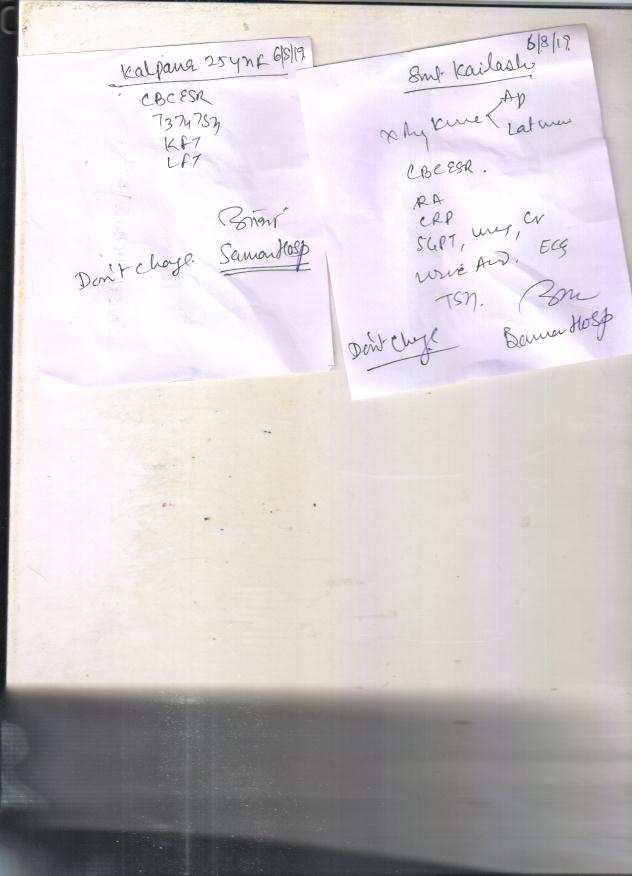 Kalpana 25 yr F 6/8/19
CBC ESR
T3T4TSH
KFT
LFT
Don't charge. Saman Hosp
6/8/19
Smt. Kailash
X Ray Knee AP
Lat view
CBC ESR.
RA
CRP
SGPT, Urea, Cr
Uric Acid. ECG
TSH.
Don't charge
Saman Hosp